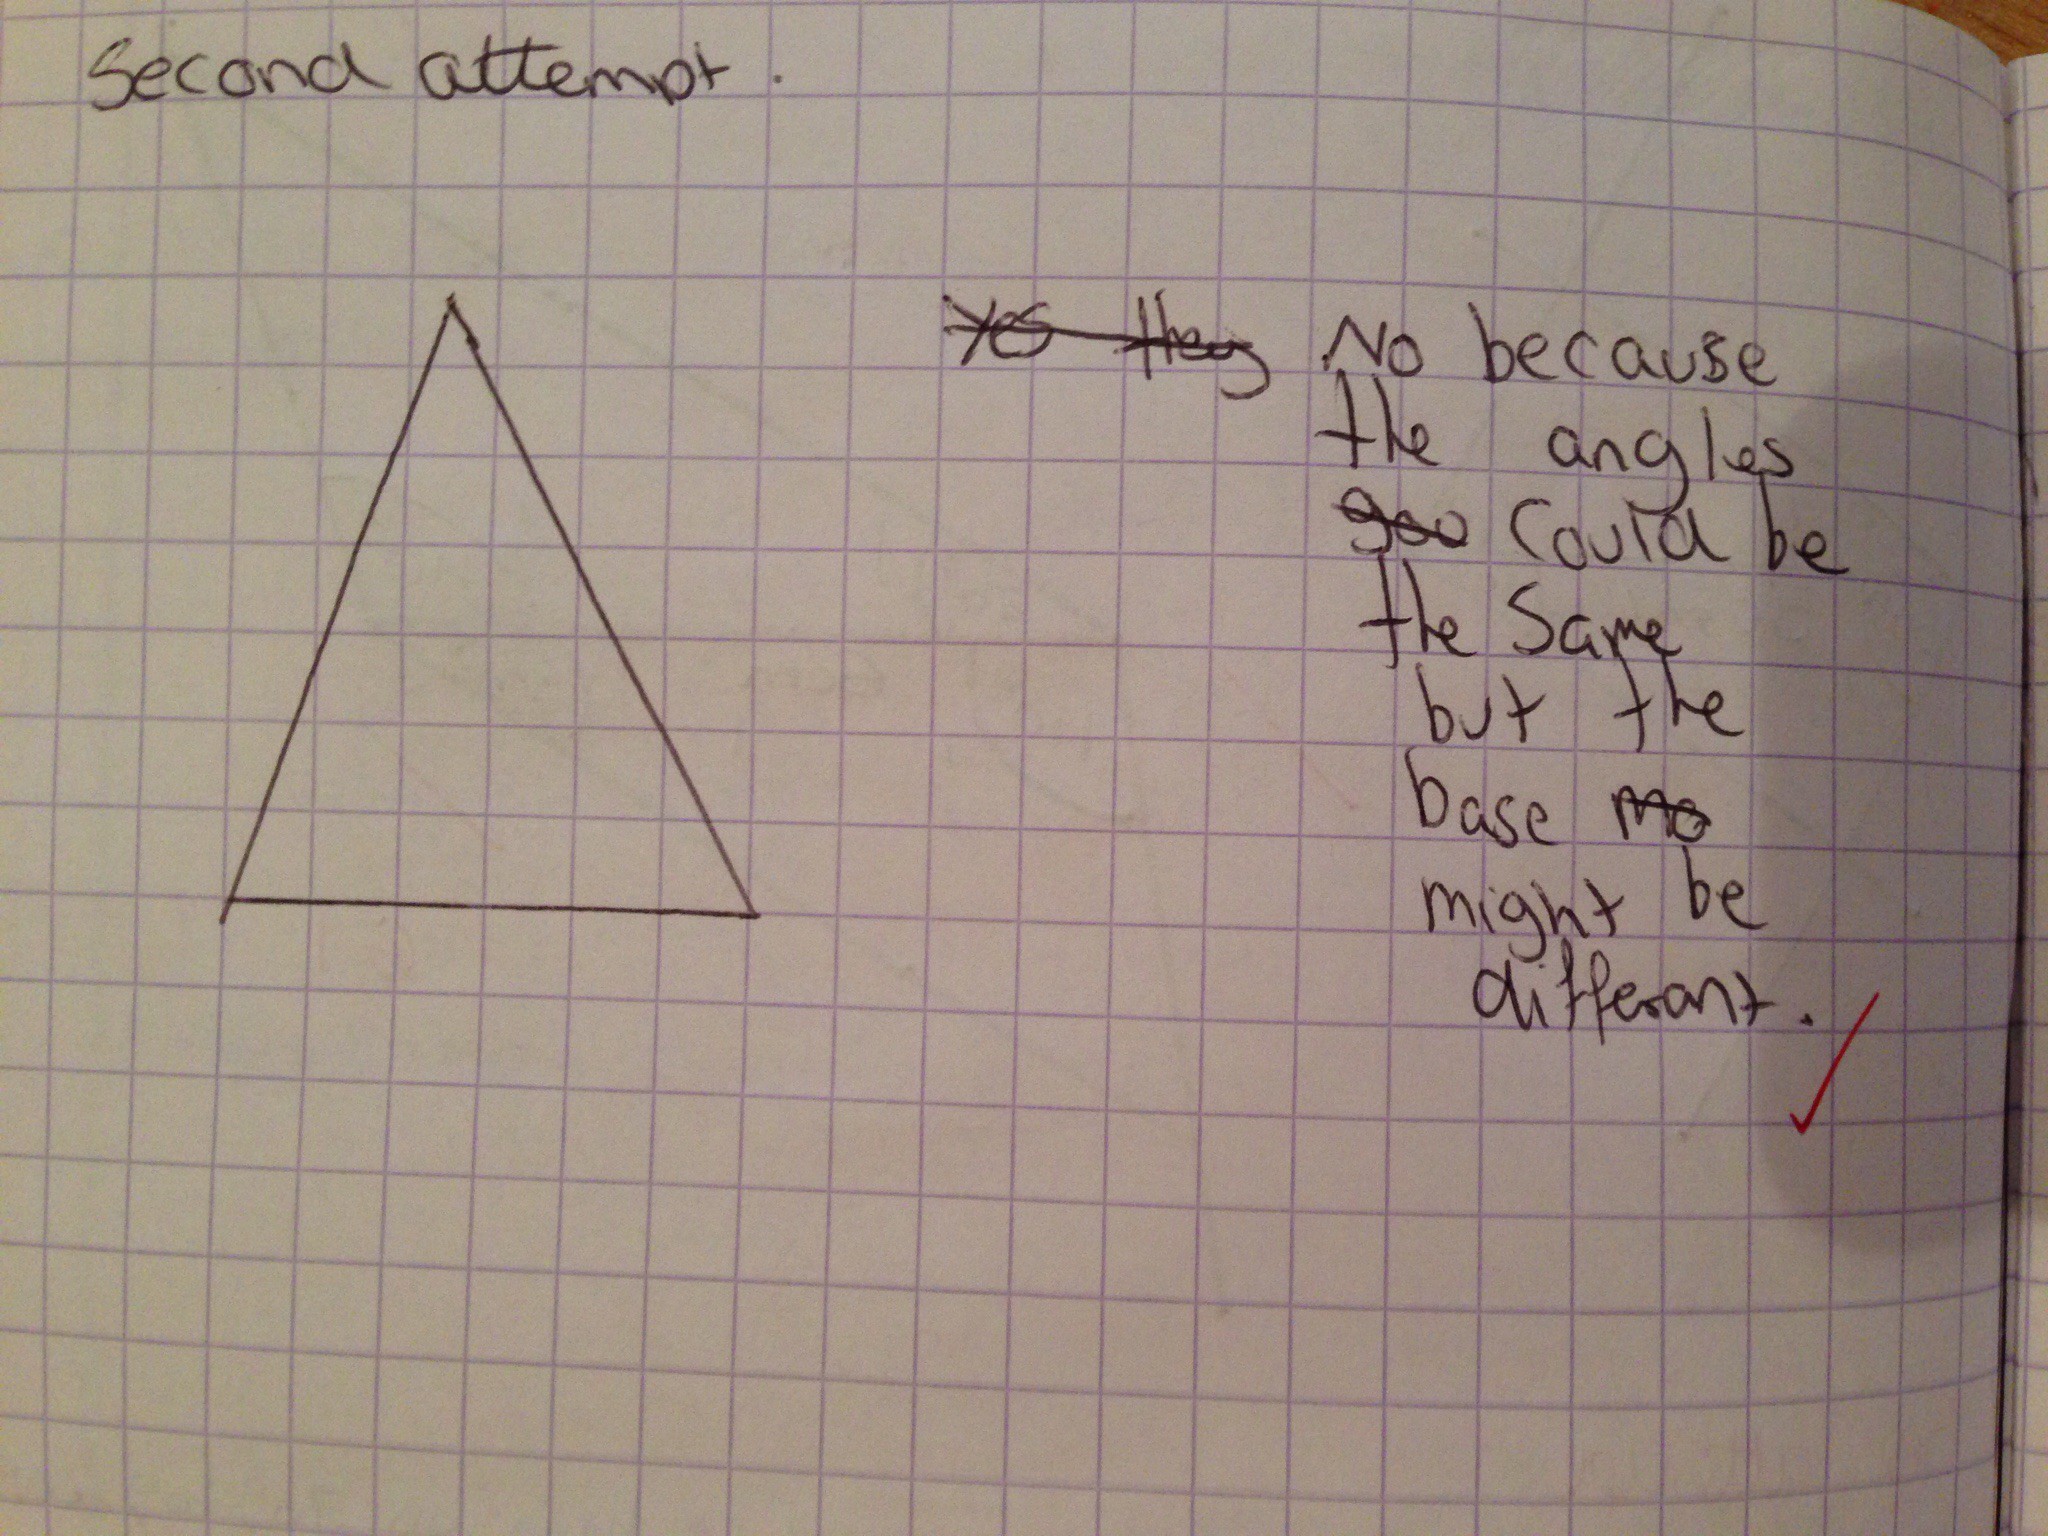 Second attempt.
Yes they No because
the angles
goo could be
the same
but the
base mo
might be
differant.